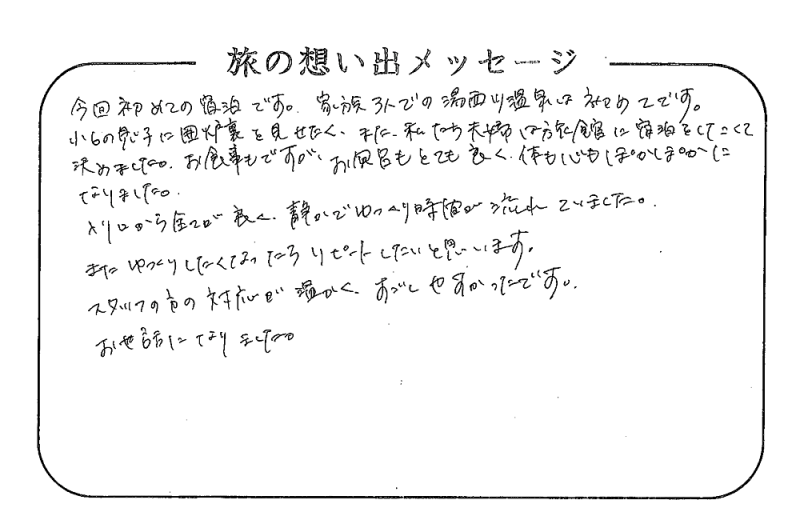 旅の想い出メッセージ
今回初めての宿泊です。家族3人での湯西川温泉は初めてです。
小6の息子に囲炉裏を見せたく、また、私たち夫婦は旅館に宿泊をしたくて
決めました。お食事もですが、お風呂もとても良く、体も心もぽかぽかに
なりました。
入り口から全てが良く、静かでゆっくり時間が流れていました。
またゆっくりしたくなったらリピートしたいと思います。
スタッフの方の対応が温かく、すごしやすかったです。
お世話になりました。